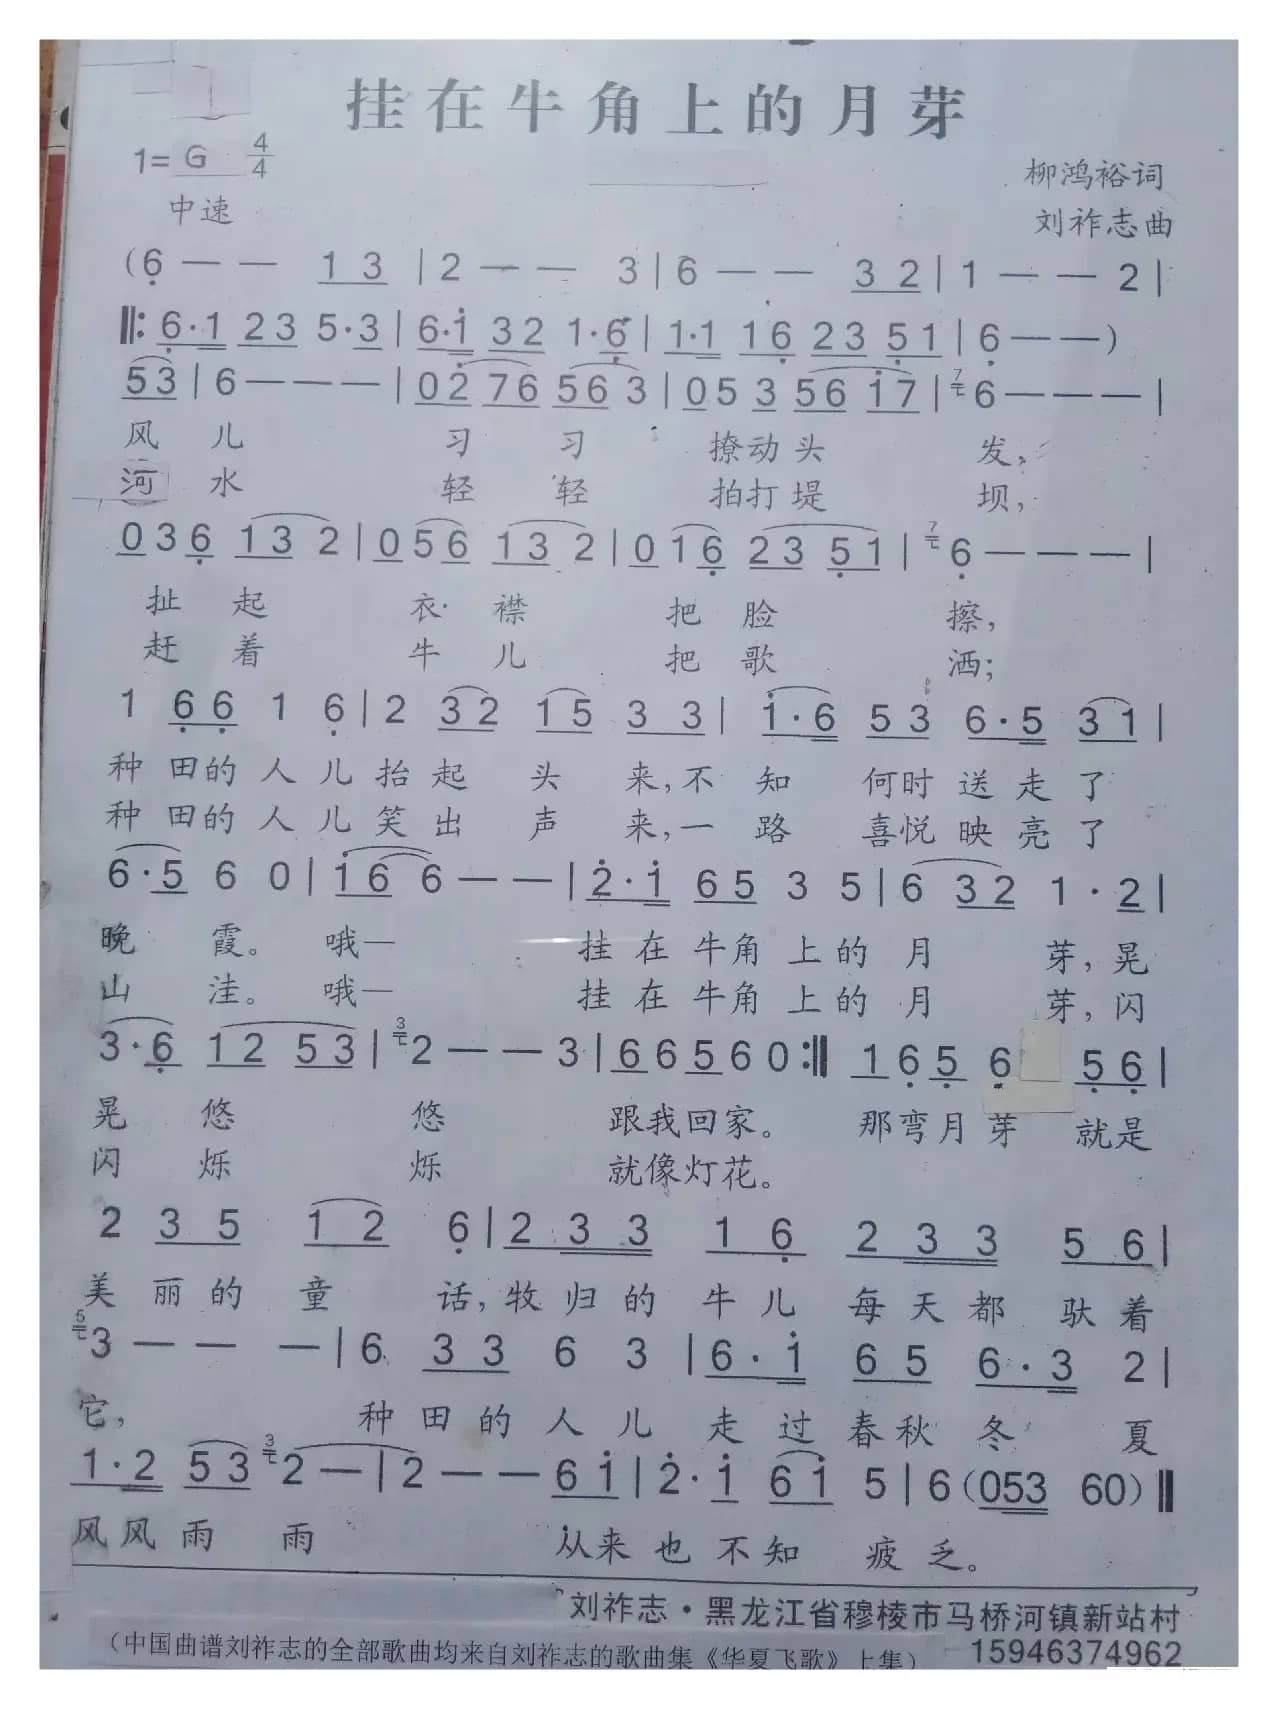 挂在牛角上的月芽
1= G 4/4
柳鸿裕词
中速
刘祚志曲
(6 — — 1 3 | 2 — — 3 | 6 — — 3 2 | 1 — — 2 |
‖: 6·1 2 3 5·3 | 6·1 3 2 1·6 | 1·1 1 6 2 3 5 1 | 6 — — )
5 3 | 6 — — — | 0 2 7 6 5 6 3 | 0 5 3 5 6 1 7 | 7 6 — — — |
风 儿 习 习 撩动头 发,
河 水 轻 轻 拍打堤 坝,
0 3 6 1 3 2 | 0 5 6 1 3 2 | 0 1 6 2 3 5 1 | 7 6 — — — |
扯 起 衣 襟 把 脸 擦,
赶 着 牛 儿 把 歌 洒;
1 6 6 1 6 | 2 3 2 1 5 3 3 | 1·6 5 3 6·5 3 1 |
种 田 的 人 儿 抬 起 头 来, 不 知 何时 送 走 了
种 田 的 人 儿 笑 出 声 来, 一 路 喜悦 映 亮 了
6·5 6 0 | 1 6 6 — — | 2·1 6 5 3 5 | 6 3 2 1·2 |
晚 霞。 哦— 挂 在 牛角 上 的 月 芽, 晃
山 洼。 哦— 挂 在 牛角 上 的 月 芽, 闪
3·6 1 2 5 3 | 3 2 — — 3 | 6 6 5 6 0 :‖ 1 6 5 6 5 6 |
晃 悠 悠 跟我回家。 那弯月芽 就是
闪 烁 烁 就像灯花。
2 3 5 1 2 6 | 2 3 3 1 6 2 3 3 5 6 |
美 丽 的 童 话, 牧 归 的 牛 儿 每 天 都 驮 着
5 3 — — — | 6 3 3 6 3 | 6·1 6 5 6·3 2 |
它, 种 田 的 人 儿 走 过 春 秋 冬 夏
1·2 5 3 3 2 — | 2 — — 6 1 | 2·1 6 1 5 | 6 (053 60) ‖
风 风 雨 雨 从来 也 不 知 疲 乏。
刘祚志·黑龙江省穆棱市马桥河镇新站村
(中国曲谱刘祚志的全部歌曲均来自刘祚志的歌曲集《华夏飞歌》上集) 15946374962